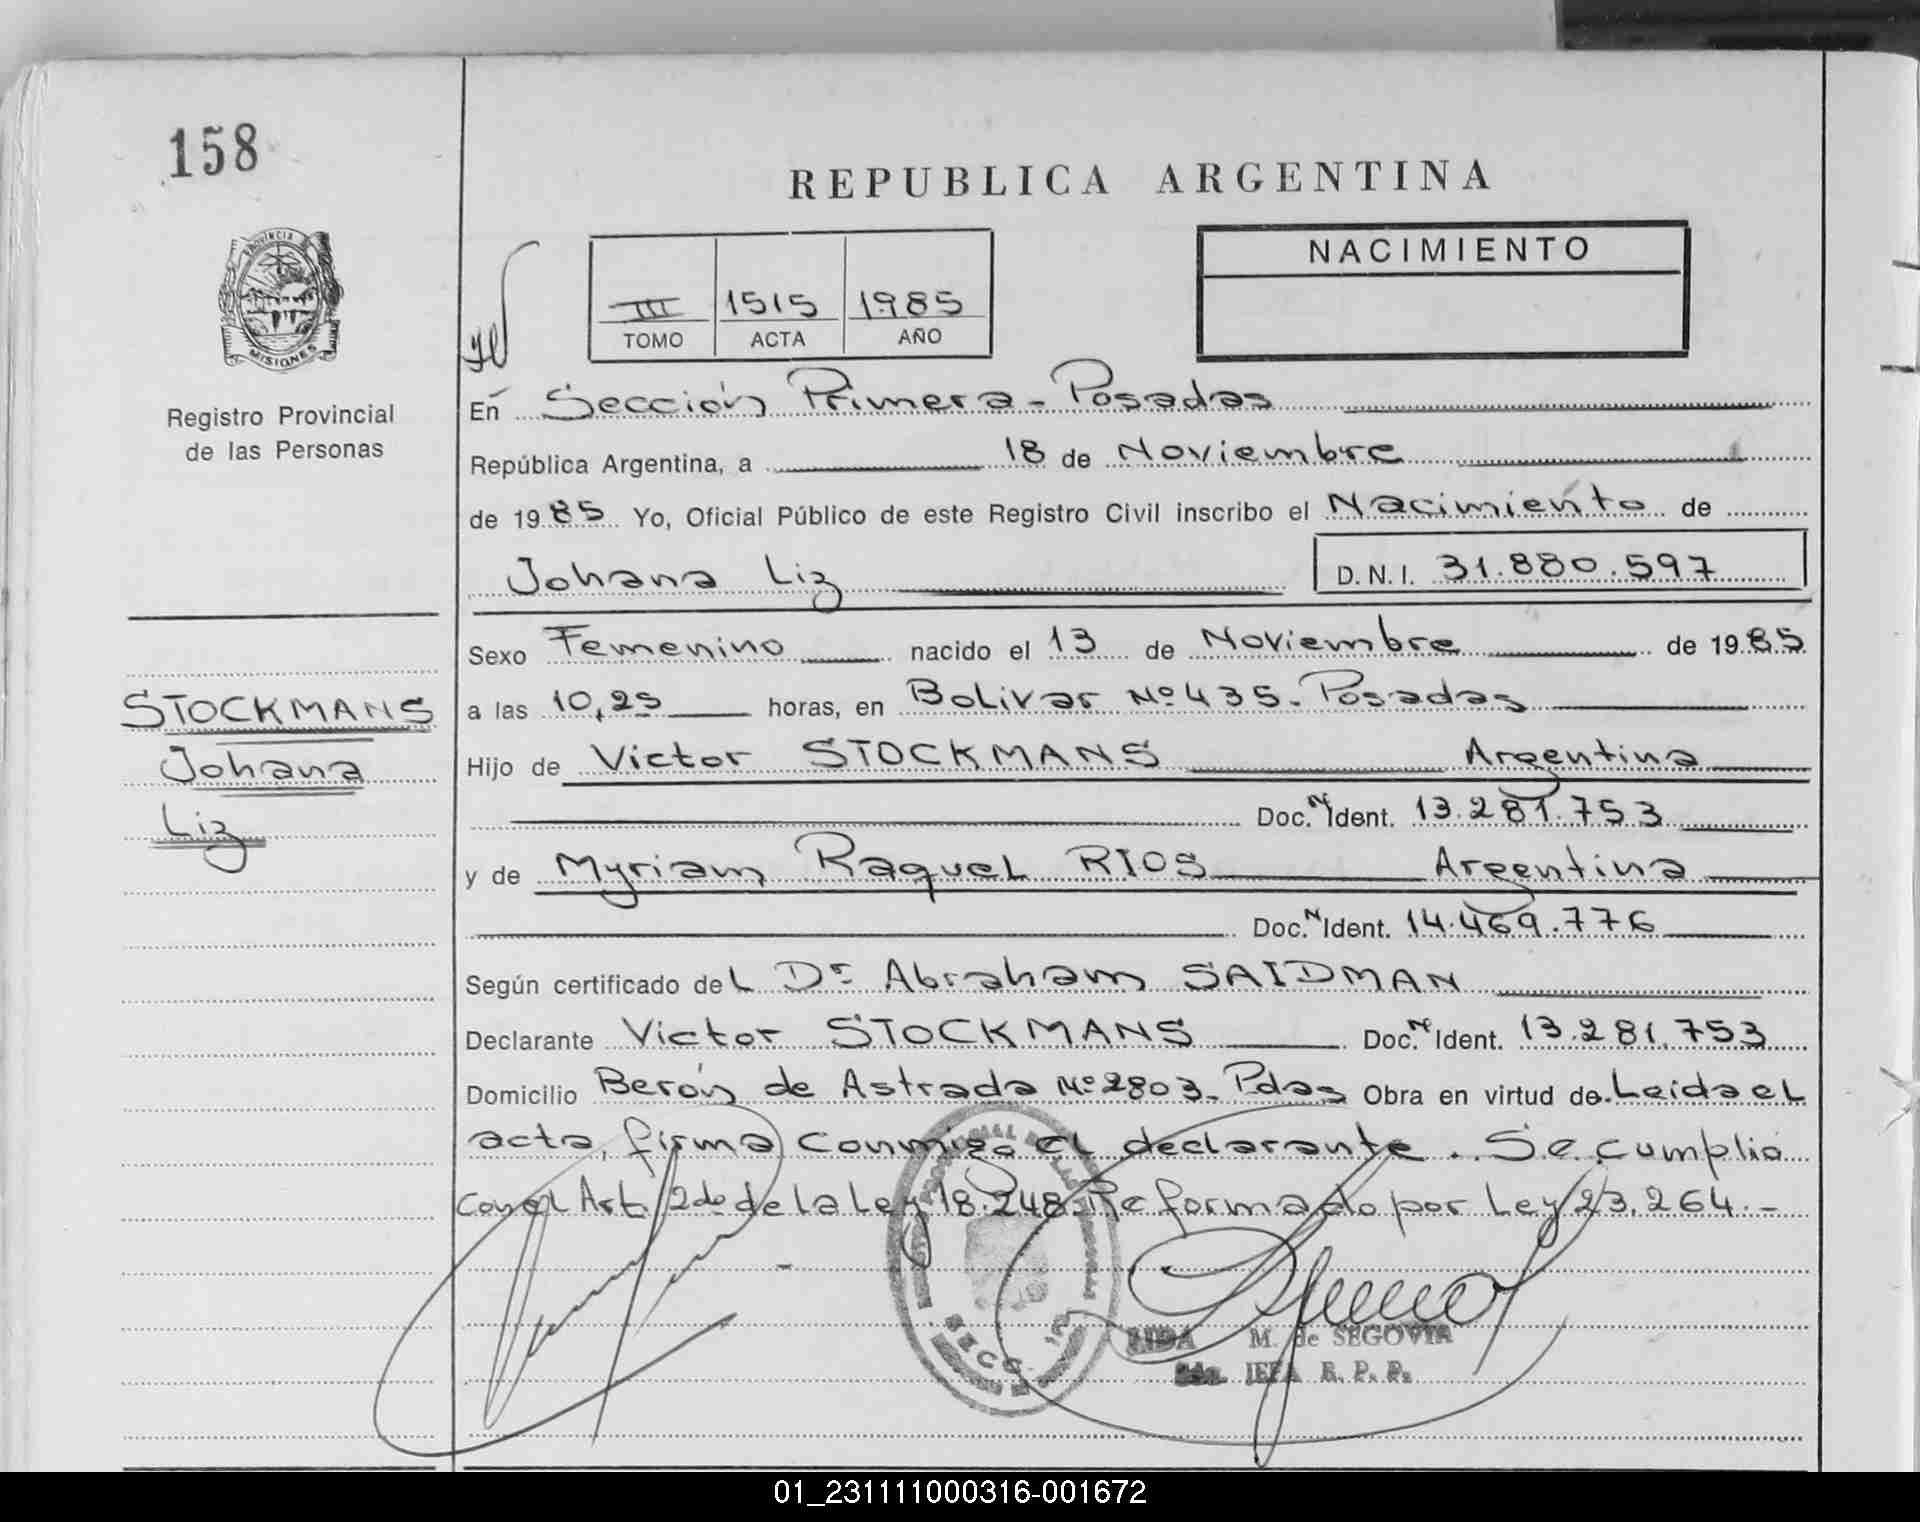 158
REPUBLICA ARGENTINA
PROVINCIA
MISIONES
Registro Provincial
de las Personas
III 1515 1985
TOMO ACTA AÑO
NACIMIENTO
En Sección Primera - Posadas
República Argentina, a 18 de Noviembre
de 1985 Yo, Oficial Público de este Registro Civil inscribo el Nacimiento de
Johana Liz D.N.I. 31.880.597
Sexo Femenino nacido el 13 de Noviembre de 1985
STOCKMANS
Johana
Liz
a las 10,25 horas, en Bolivar Nº 435. Posadas
Hijo de Victor STOCKMANS Argentina
Doc. N Ident. 13.281.753
y de Myriam Raquel RIOS Argentina
Doc. N Ident. 14.469.776
Según certificado del Dr Abraham SAIDMAN
Declarante Victor STOCKMANS Doc. N Ident. 13.281.753
Domicilio Berón de Astrada Nº 2803. Pdas Obra en virtud de Leida el
acta, firma conmigo el declarante. Se cumplió
con el Art. 2do de la Ley 18.248. Reformado por Ley 23.264.-
M. de SEGOVIA
JEFA R. P. P.
01_231111000316-001672